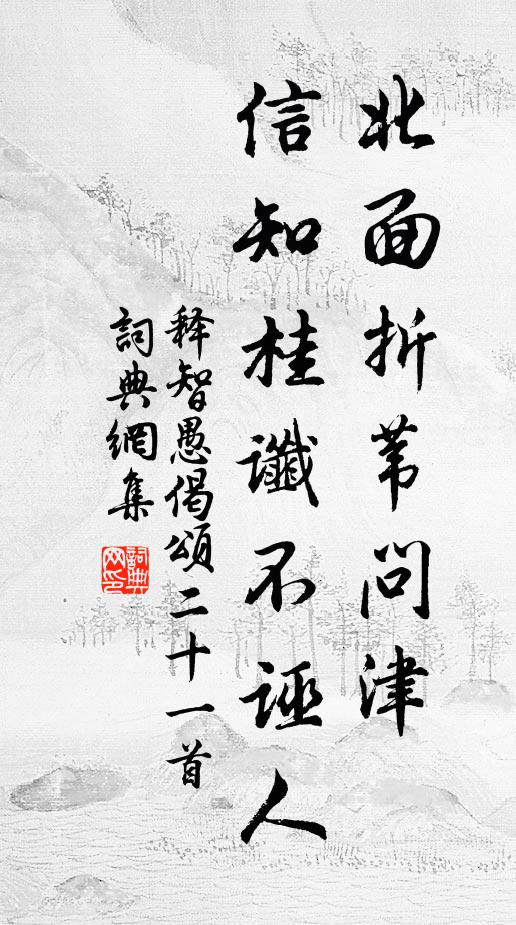 北面折苇问津
信知桂讖不诬人
释智愚偈颂二十一首
詞典網集
詞典網印